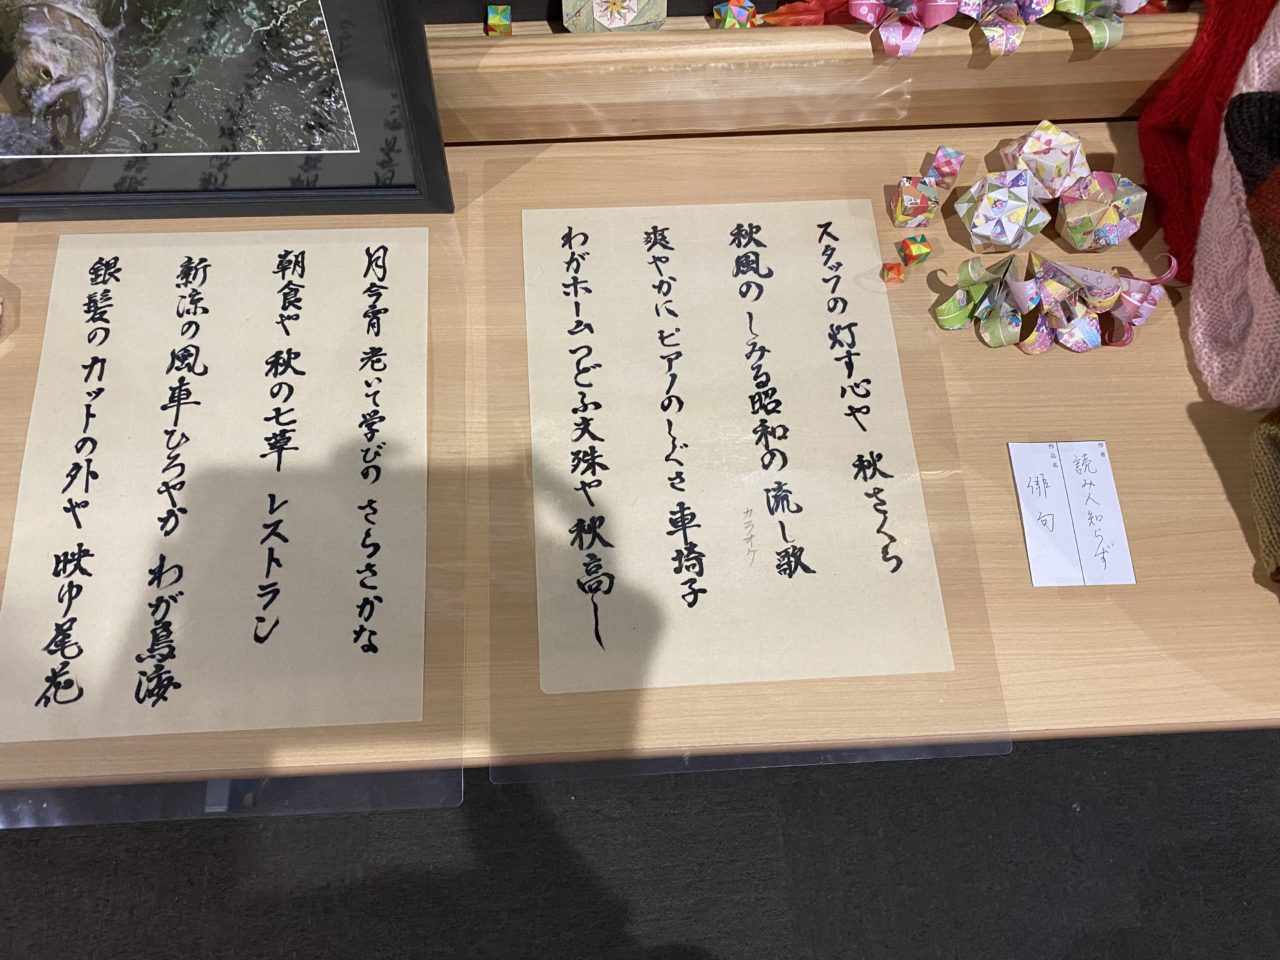 作者
読み人知らず
作品名
俳句
スタッフの灯す心や 秋さくら
秋風のしみる昭和の流し歌
カラオケ
爽やかにピアノのしぐさ車埼子
わがホームつどふ文殊や秋高し
月今宵 老いて学びの さらさかな
朝食や 秋の七草 レストラン
新涼の風車ひろやか わが鳥海
銀髪のカットの外や 映ゆ尾花